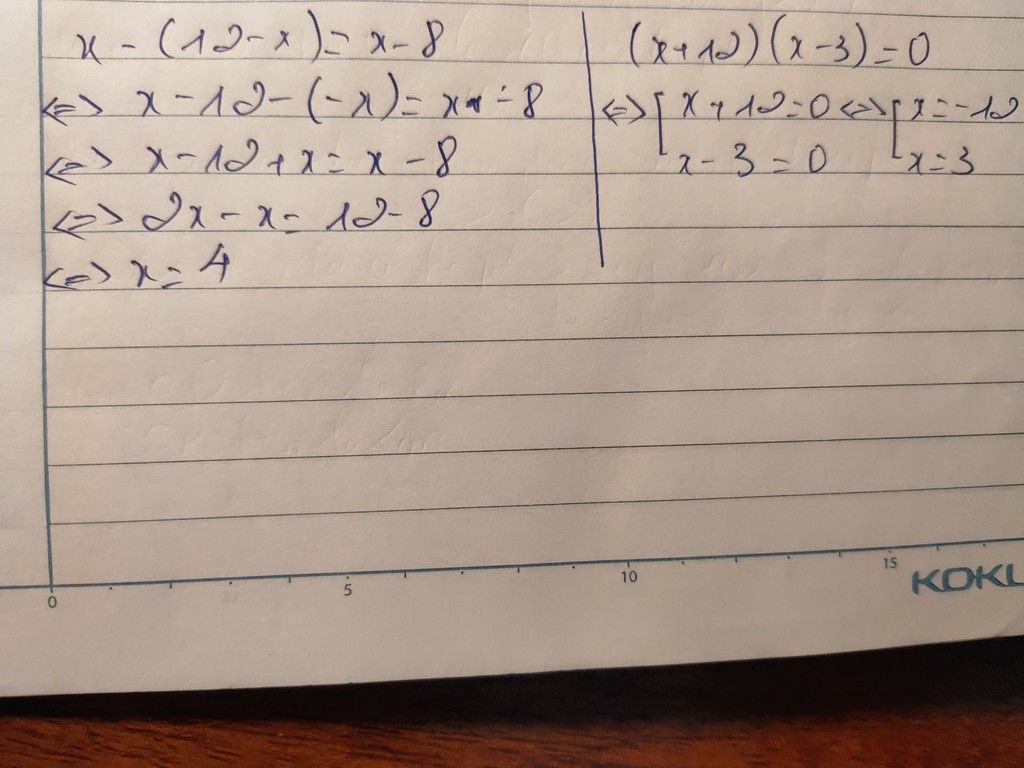 x - (12 - x) = x - 8
<=> x - 12 - (-x) = x - 8
<=> x - 12 + x = x - 8
<=> 2x - x = 12 - 8
<=> x = 4
(x + 12)(x - 3) = 0
<=> [ x + 12 = 0 <=> [ x = -12
x - 3 = 0 x = 3
0 5 10 15
KOKU